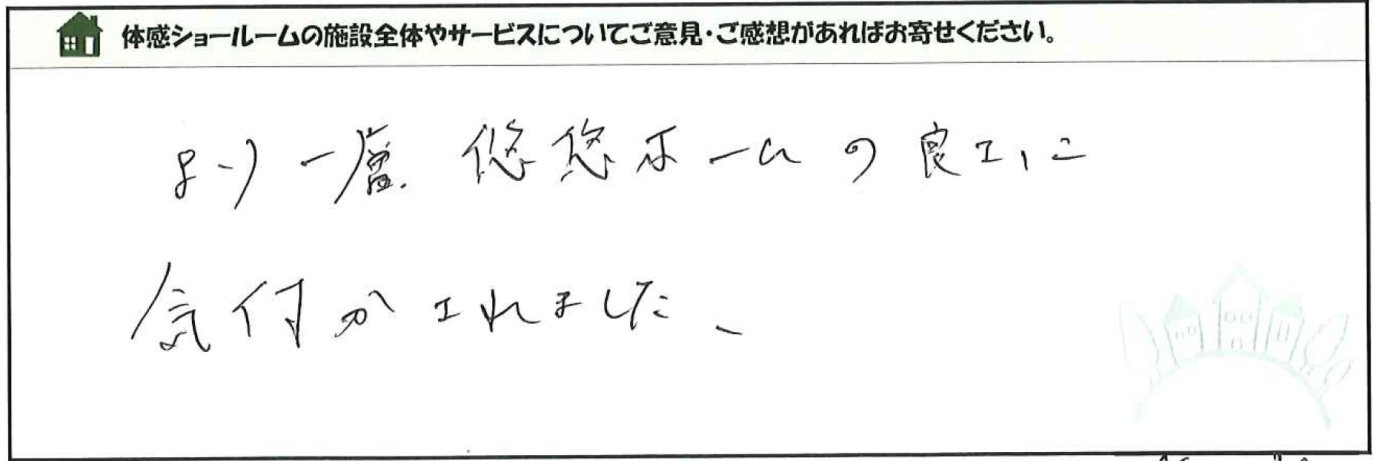 体感ショールームの施設全体やサービスについてご意見・ご感想があればお寄せください。
より一層 悠悠ホームの良さに
気付かされました。